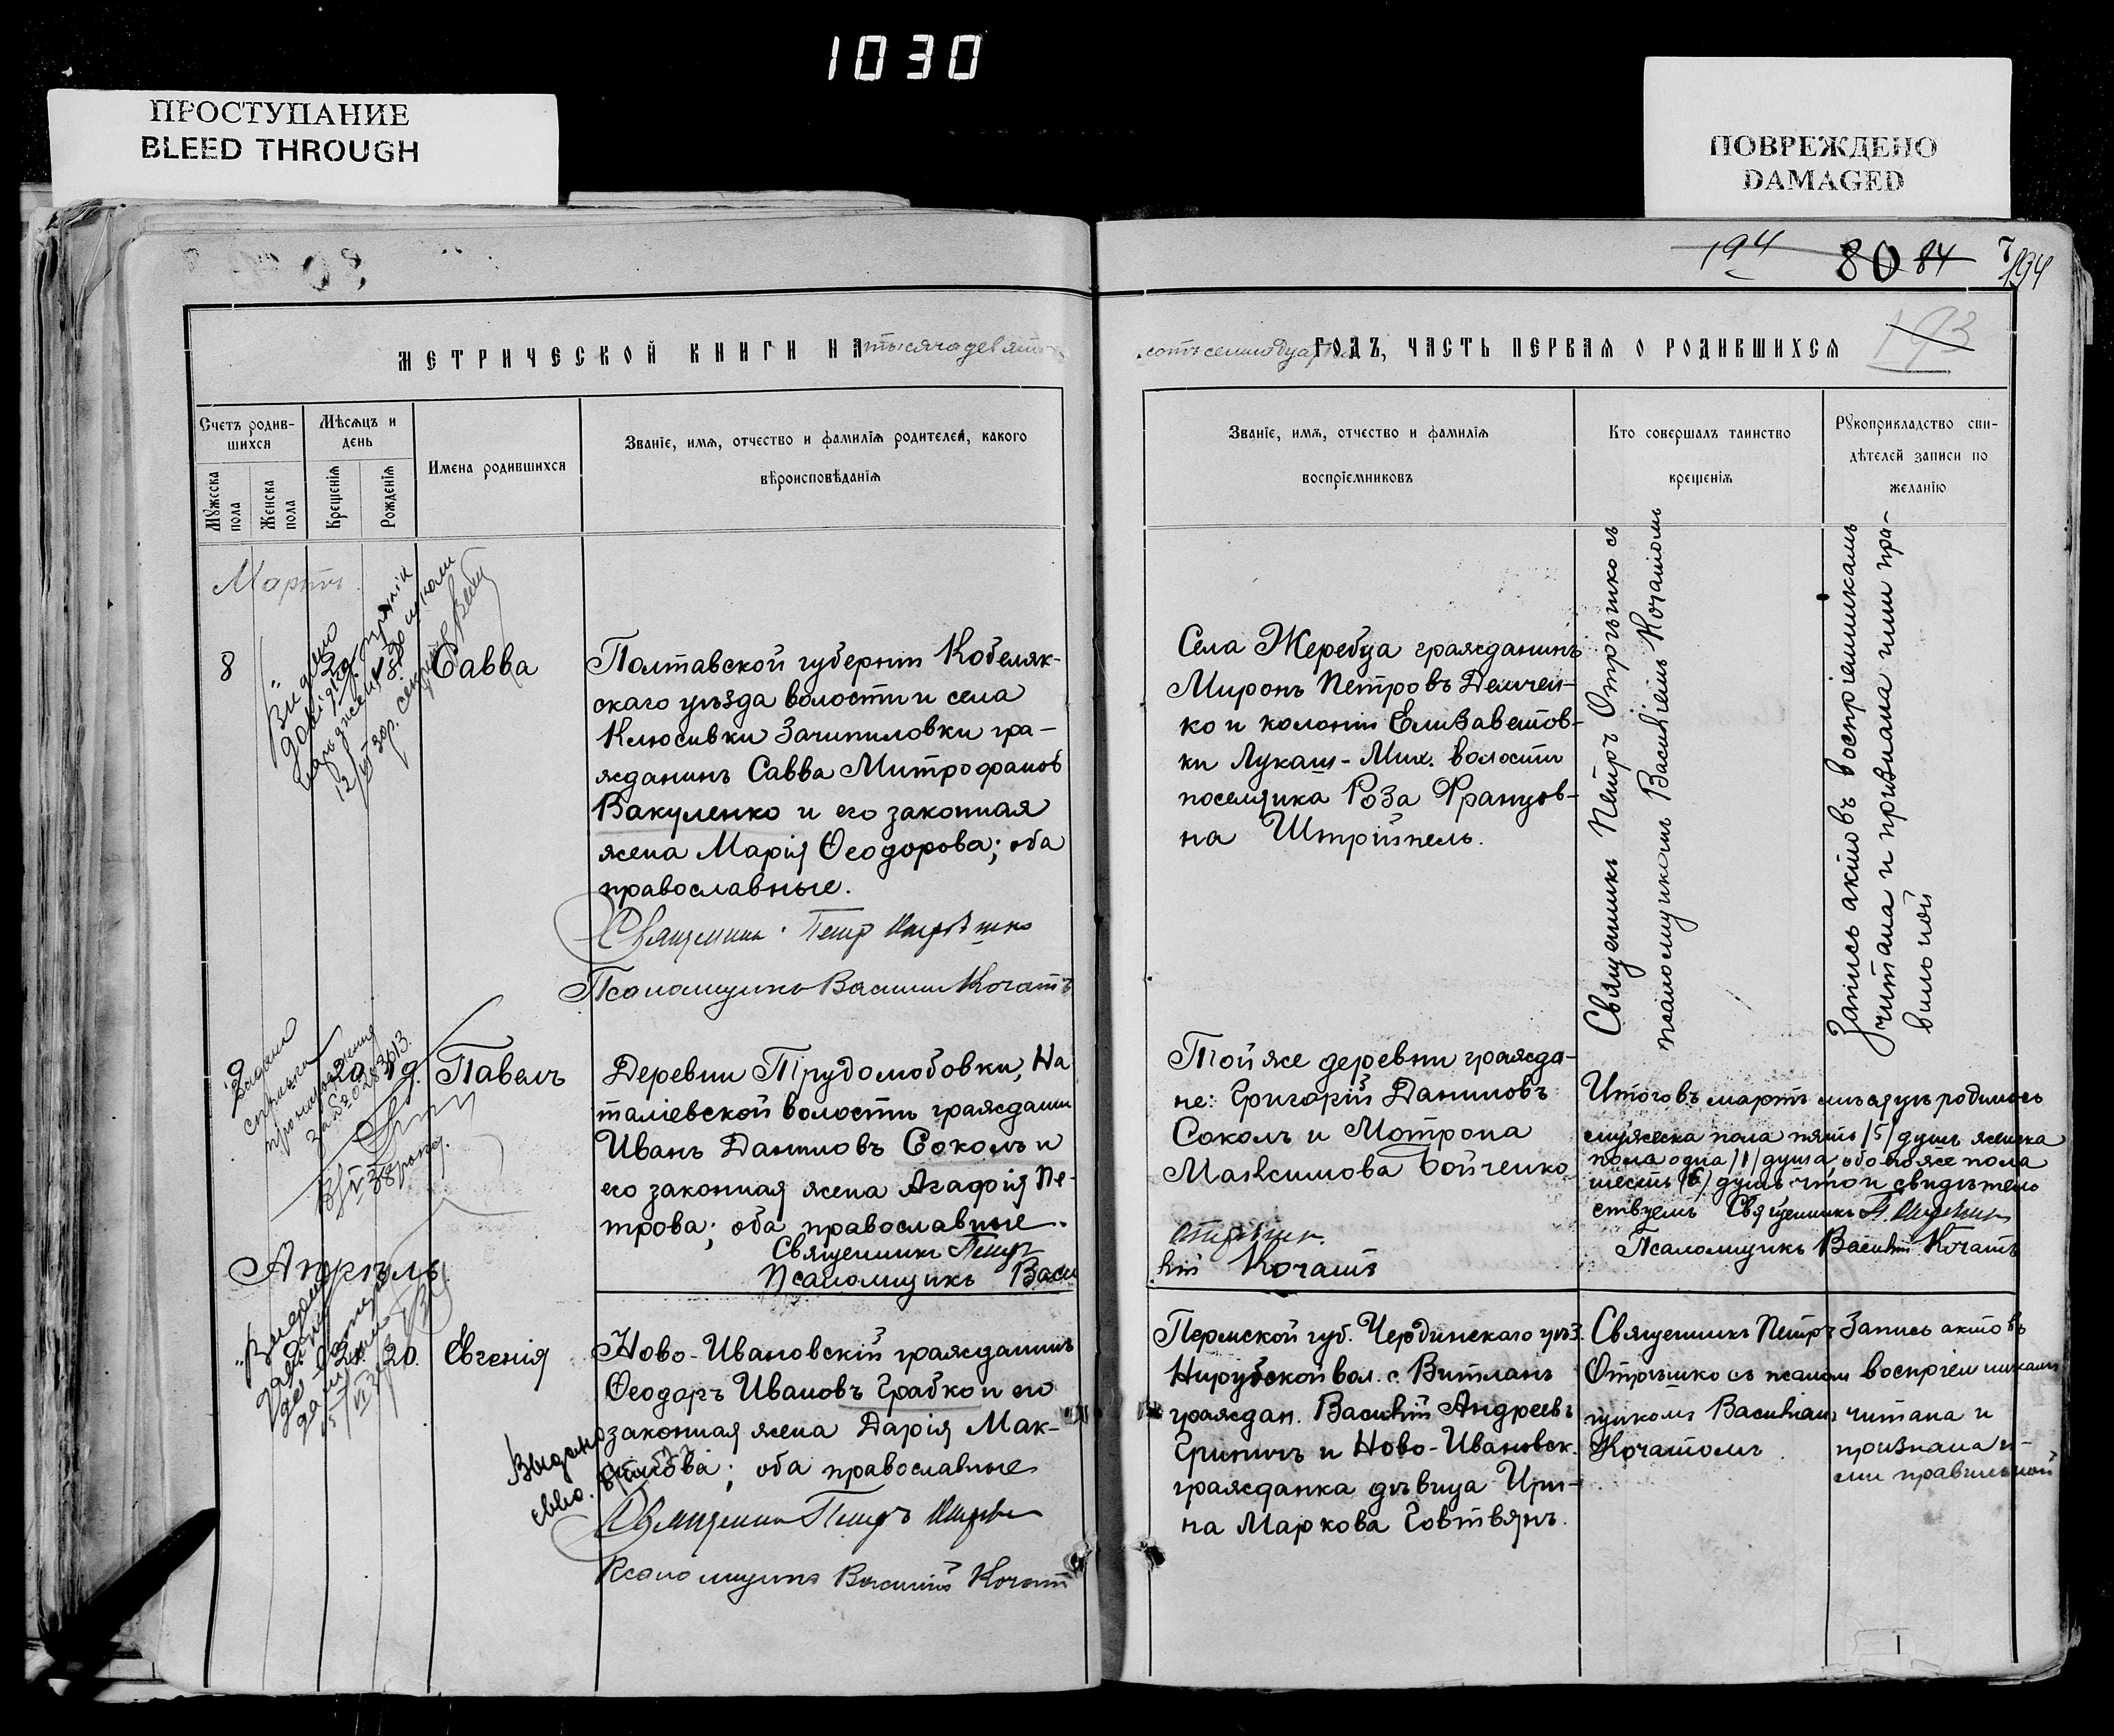 1030
ПРОСТУПАНИЕ
BLEED THROUGH
ПОВРЕЖДЕНО
DAMAGED
194 80 84
194
193
МЕТРИЧЕСКОЙ КНИГИ НА тысяча девять
сотъ ГОДЪ, ЧАСТЬ ПЕРВАЯ О РОДИВШИХСЯ
Счетъ родив-
шихся
Мужеска пола
Женска пола
Мѣсяцъ и
день
Крещенія
Рожденія
Имена родившихся
Званіе, имя, отчество и фамилія родителей, какого
вѣроисповѣданія
Званіе, имя, отчество и фамилія
воспріемниковъ
Кто совершалъ таинство
крещенія
Рукоприкладство сви-
дѣтелей записи по
желанію
Мартъ
8
Савва
Полтавской губерніи Кобеляк-
скаго уѣзда волости и села
Клюсивки Зачипиловки гра-
жданинъ Савва Митрофановъ
Вакуленко и его законная
жена Марія Ѳеодорова; оба
православные.
Священникъ Петр Отрѣшко
Псаломщикъ Василий Кочатъ
Села Жеребца гражданинъ
Миронъ Петровъ Демчен-
ко и колоніи Елизаветов-
ки Лукаш-Мих. волости
поселянка Роза Францов-
на Штрійпель.
Священникъ Петръ Отрѣшко съ
псаломщикомъ Василіемъ Кочатомъ
Запись актовъ воспріемникамъ
читана и признана ими пра-
вильной
9
20 19.
Павелъ
Деревни Трудолюбовки, На
таліевской волости граждани
Иванъ Даниловъ Соколъ и
его законная жена Агафія Пе-
трова; оба православные.
Священникъ Петръ
Псаломщикъ Васи
Той же деревни гражда-
не: Григорій Даниловъ
Соколъ и Мотрона
Максимова Бойченко
Отрѣшко.
лій Кочатъ
Итого въ мартѣ мѣсяцѣ родилось
мужеска пола пять /5/ душъ женска
пола одна /1/ душа, обоего же пола
шесть /6/ душъ что и свидѣтель
ствуемъ Священникъ П. Отрѣшко
Псаломщикъ Василій Кочатъ
Апрѣль
20.
Евгенія
Ново-Ивановскій гражданинъ
Ѳеодоръ Ивановъ Грабко и его
законная жена Дарія Мак-
симова; оба православные
Священникъ Петръ Отрѣшко
Псаломщикъ Василій Кочатъ
Выдано
Пермской губ. Чердинскаго уѣз.
Нирубской вол. с. Витланъ
граждан. Василій Андреевъ
Гриничъ и Ново-Ивановск.
гражданка дѣвица Ири-
на Маркова Говтвянъ.
Священникъ Петръ
Отрѣшко съ псалом
щикомъ Василіемъ
Кочатомъ
Запись актовъ
воспріемникамъ
читана и
признана и-
ми правильной